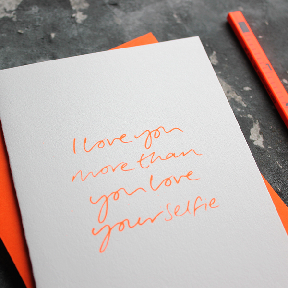 I love you
more than
you love
yourselfie